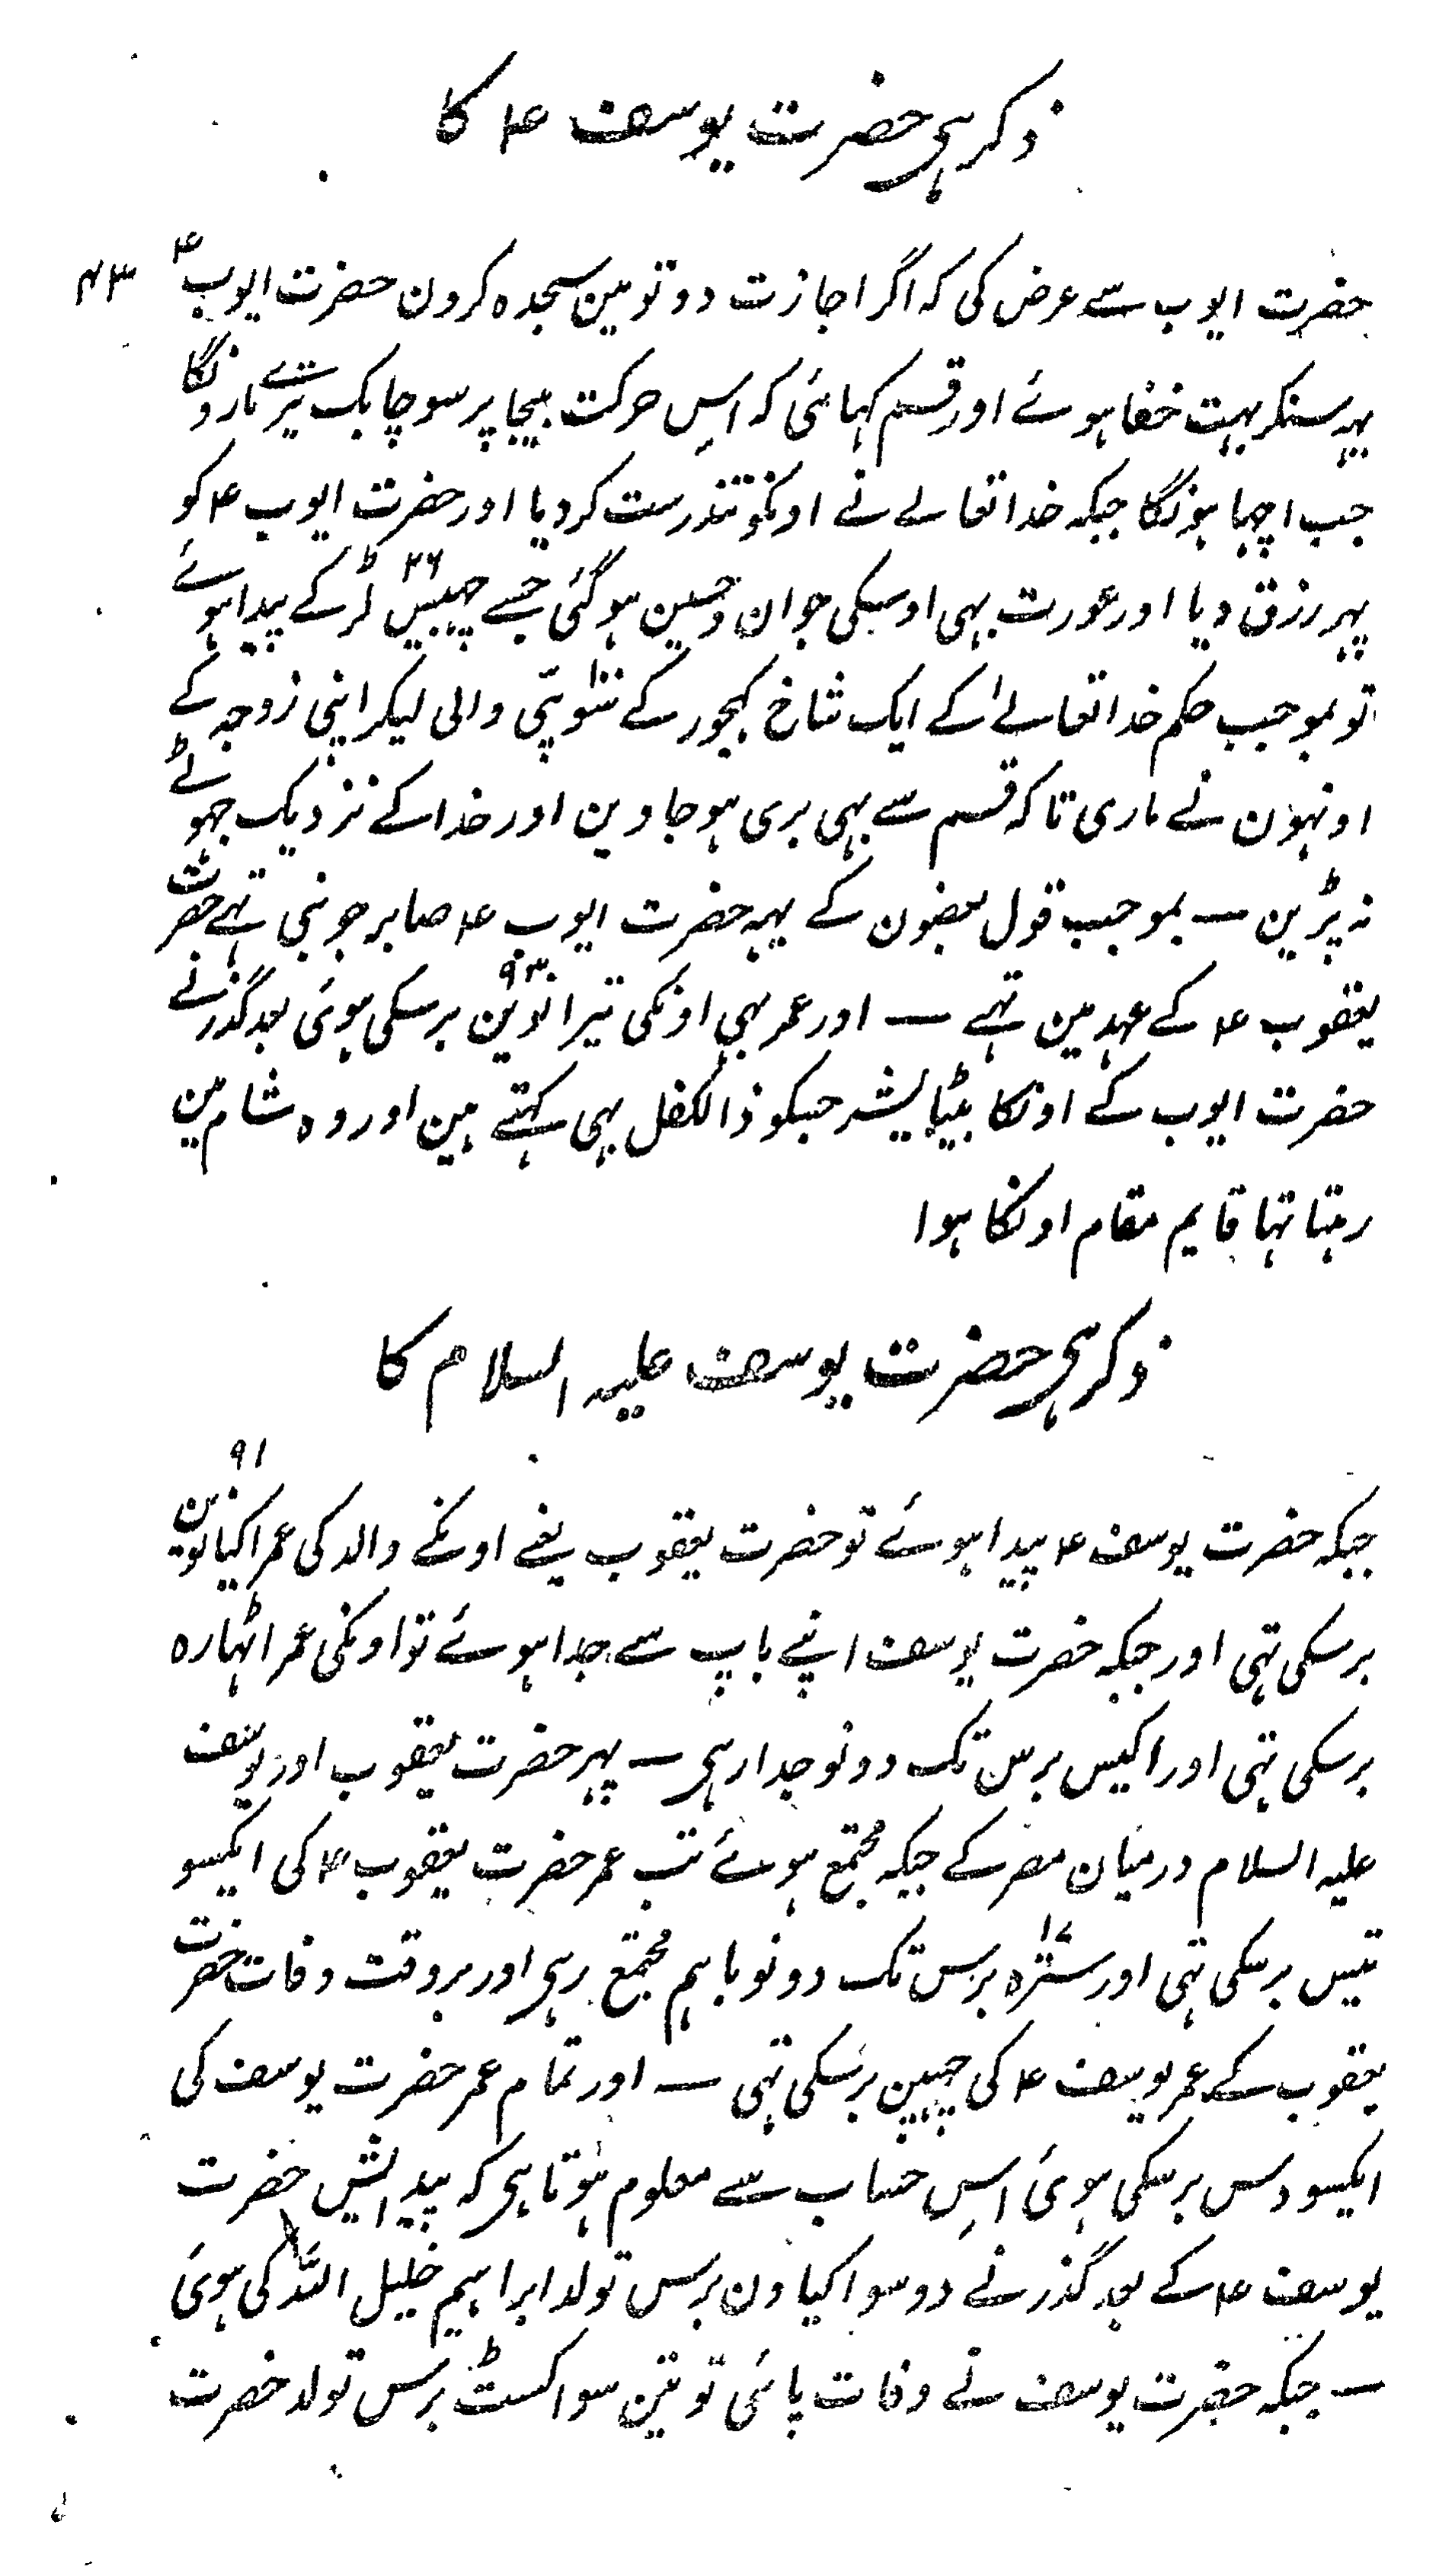 ذکر ہی حضرت یوسف ۴ کا
۴۳
حضرت ایوب سے عرض کی کہ اگر اجازت دو تو مین سجدہ کرون حضرت ایوب ۴
یہہ سنکر بہت خفا ہوئے اور قسم کہائی کہ اس حرکت بیجا پر سو چابک تیرے مارونگا
جب اچہا ہونگا جبکہ خدا تعالے نے اونکو تندرست کردیا اور حضرت ایوب ۴ کو
پہر رزق دیا اور عورت بہی اوسکی جوان و حسین ہو گئی جسے چہبیس ۲۶ لڑکے پیدا ہوئے
تو بموجب حکم خدا تعالےٰ کے ایک شاخ کہجور کے سو پتی والی لیکر اپنی زوجہ کے
اونہون نے ماری تاکہ قسم سے بہی بری ہو جاوین اور خدا کے نزدیک جہوٹے
نہ پڑین — بموجب قول بعضون کے یہہ حضرت ایوب ۴ صابر جو نبی تہے حضرت
یعقوب ۴ کے عہد مین تہے — اور عمر بہی اونکی تیرانوین ۹۳ برسکی ہوئی بعد گذرنے
حضرت ایوب کے اونکا بیٹا بشر جسکو ذالکفل بہی کہتے ہین اور وہ شام مین
رہتا تہا قایم مقام اونکا ہوا
ذکر ہی حضرت یوسف علیہ السلام کا
۹۱
جبکہ حضرت یوسف ۴ پیدا ہوئے تو حضرت یعقوب یعنے اونکے والد کی عمر اکیانوین
برسکی تہی اور جبکہ حضرت یوسف اپنے باپ سے جدا ہوئے تو اونکی عمر اٹہارہ
برسکی تہی اور اکیس برس تک دونو جدا رہی — پہر حضرت یعقوب اور یوسف
علیہ السلام درمیان مصر کے جبکہ مجتمع ہوئے تب عمر حضرت یعقوب ۴ کی ایکسو
تیس برسکی تہی اور سترہ ۱۷ برس تک دونو باہم مجتمع رہی اور بروقت وفات حضرت
یعقوب کے عمر یوسف ۴ کی چہپین برسکی تہی — اور تمام عمر حضرت یوسف کی
ایکسو دس برسکی ہوئ اس حساب سے معلوم ہوتا ہی کہ پیدایش حضرت
یوسف ۴ کے بعد گذرنے دو سو اکیاون برس تولد ابراہیم خلیل اللہ کی ہوئ
— جبکہ حضرت یوسف نے وفات پائی تو تین سو اکسٹ برس تولد حضرت